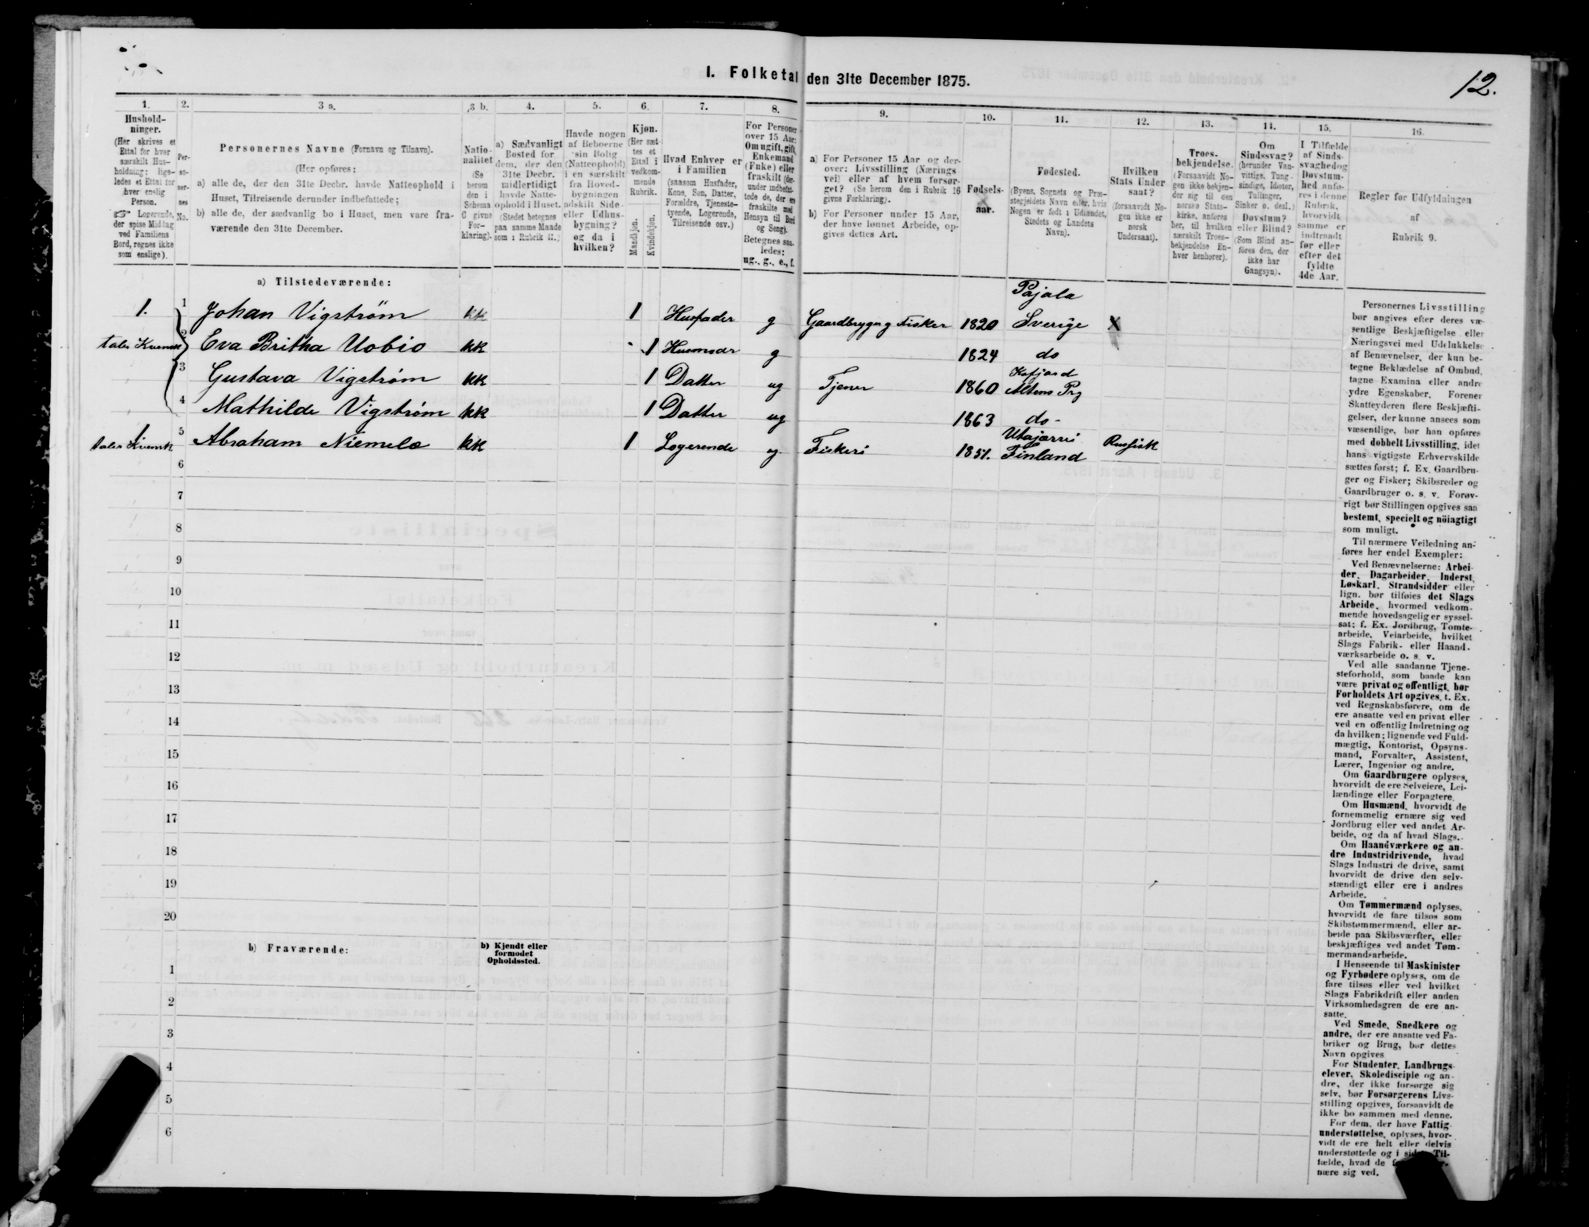 I. Folketal den 31te December 1875.
12.
1.
Hushold-
ninger.
(Her skrives et
Ettal for hver
særskilt Hus-
holdning; lige-
ledes et Ettal for
hver enslig
Person.
Logerende,
der spise Middag
ved Familiens
Bord, regnes ikke
som enslige).
2.
Per-
so-
ner-
nes
No.
3 a.
Personernes Navne (Fornavn og Tilnavn).
(Her opføres:
a) alle de, der den 31te Decbr. havde Natteophold i
Huset, Tilreisende derunder indbefattede;
b) alle de, der sædvanlig bo i Huset, men vare fra-
værende den 31te December.
3 b.
Natio-
nalitet
(Se
herom
den i
Schema
C givne
For-
klaring).
4.
a) Sædvanligt
Bosted for
dem, der den
31te Decbr.
midlertidigt
havde Natte-
ophold i Huset.
(Stedet betegnes
paa samme Maade
som i Rubrik 11.)
5.
Havde nogen
af Beboerne
sin Bolig
(Natteophold)
i en særskilt
fra Hoved-
bygningen
adskilt Side-
eller Udhus-
bygning?
og da i
hvilken?
6.
Kjøn.
(Her sæt-
tes et
Ettal i
vedkom-
mende
Rubrik.
Mandkjøn.
Kvindekjøn.
7.
Hvad Enhver er
i Familien
(saasom Husfader,
Kone, Søn, Datter,
Forældre, Tjeneste-
tyende, Logerende,
Tilreisende osv.)
8.
For Personer
over 15 Aar:
Om ugift, gift,
Enkemand
(Enke) eller
fraskilt (der-
under indbefat-
tede de, der ere
fraskilte med
Hensyn til Bord
og Seng).
Betegnes saa-
ledes:
ug., g., e., f.
9.
a) For Personer 15 Aar og der-
over: Livsstilling (Nærings
vei) eller af hvem forsør-
get? (Se herom den i Rubrik 16
givne Forklaring).
b) For Personer under 15 Aar,
der have lønnet Arbeide, op-
gives dettes Art.
10.
Fødsels-
aar.
11.
Fødested.
(Byens, Sognets og Præ-
stegjeldets Navn eller, hvis
Nogen er født i Udlandet,
Stedets og Landets
Navn).
12.
Hvilken
Stats Under
saat?
(forsaavidt No-
gen ikke er
norsk
Undersaat).
13.
Troes-
bekjendelse.
(Forsaavidt No-
gen ikke bekjen-
der sig til den
norske Stats-
kirke, anføres
her, til hvilken
særskilt Troes-
bekjendelse En-
hver henhører).
14.
Om
Sindssvag?
(herunder Van-
vittige, Tung-
sindige, Idioter,
Tullinger,
Sinker o. desl.)
Døvstum?
eller Blind?
(Som Blind an-
føres den, der
ikke har
Gangsyn).
15.
I Tilfælde
af Sinds-
svaghed og
Døvstum-
hed anfø-
res i denne
Rubrik,
hvorvidt
samme er
indtraadt
før eller
efter det
fyldte
4de Aar.
16.
Regler for Udfyldningen
af
Rubrik 9.
a) Tilstedeværende:
1. 1 Johan Vigstrøm kk 1 Husfader g Gaardbryger g Fisker 1820 Pajala Sverige X
taler Kvensk 2 Eva Britha Uobio kk 1 Husmoder g 1824 do
3 Gustava Vigstrøm kk 1 Datter ug Tjener 1860 Kafjord Altens Prg
4 Mathilde Vigstrøm kk 1 Datter ug 1863 do-
1 taler Kvensk 5 Abraham Niemela kk 1 Logerende g Fiskeri 1851. Utajarvi Finland Russisk
6
7
8
9
10
11
12
13
14
15
16
17
18
19
20
b) Fraværende:
b) Kjendt eller
formodet
Opholdssted.
1
2
3
4
5
6
Personernes Livsstilling
bør angives efter deres væ-
sentlige Beskjæftigelse eller
Næringsvei med Udelukkelse
af Benævnelser, der kun be-
tegne Beklædelse af Ombud,
tagne Examina eller andre
ydre Egenskaber. Forener
Skatteyderen flere Beskjæfti-
gelser, der kunne ansees som
væsentlige, bør han opføres
med dobbelt Livsstilling, idet
hans vigtigste Erhvervskilde
sættes først; f. Ex. Gaardbru-
ger og Fisker; Skibsreder og
Gaardbruger o. s. v. Forøv-
rigt bør Stillingen opgives saa
bestemt, specielt og nøiagtigt
som muligt.
Til nærmere Veiledning an-
føres her endel Exempler:
Ved Benævnelserne: Arbei-
der, Dagarbeider, Inderst,
Løskarl, Strandsidder eller
lign. bør tilføies det Slags
Arbeide, hvormed vedkom-
mende hovedsagelig er syssel-
sat; f. Ex. Jordbrug, Tomte-
arbeide, Veiarbeide, hvilket
Slags Fabrik- eller Haand-
værksarbeide o. s. v.
Ved alle saadanne Tjene-
steforhold, som baade kan
være privat og offentligt, bør
Forholdets Art opgives, t. Ex.
ved Regnskabsførere, om de
ere ansatte ved en privat eller
ved en offentlig Indretning og
da hvilken; lignende ved Fuld-
mægtig, Kontorist, Opsyns-
mand, Forvalter, Assistent,
Lærer, Ingeniør og andre.
Om Gaardbrugere oplyses,
hvorvidt de ere Selveiere, Lei-
lændinge eller Forpagtere.
Om Husmænd, hvorvidt de
fornemmelig ernære sig ved
Jordbrug eller ved andet Ar-
beide, og da af hvad Slags.
Om Haandværkere og an-
dre Industridrivende, hvad
Slags Industri de drive, samt
hvorvidt de drive den selv-
stændigt eller ere i andres
Arbeide.
Om Tømmermænd oplyses,
hvorvidt de fare tilsøs som
Skibstømmermænd, eller ar-
beide paa Skibsværfter, eller
beskjæftiges ved andet Tøm-
mermandsarbeide.
I Henseende til Maskinister
og Fyrbødere oplyses, om de
fare tilsøs eller ved hvilket
Slags Fabrikdrift eller anden
Virksomhed de ere an-
satte.
Ved Smede, Snedkere og
andre, der ere ansatte ved Fa-
briker og Brug, bør dettes
Navn opgives
For Studenter, Landbrugs-
elever, Skoledisciple og an-
dre, der ikke forsørge sig
selv, bør Forsørgerens Livs-
stilling opgives, forsaavidt de
ikke bo sammen med denne.
For dem, der have Fattig-
understøttelse, oplyses, hvor-
vidt de ere helt eller delvis
understøttede og i sidste Til-
fælde, hvad de
nære sig ved.